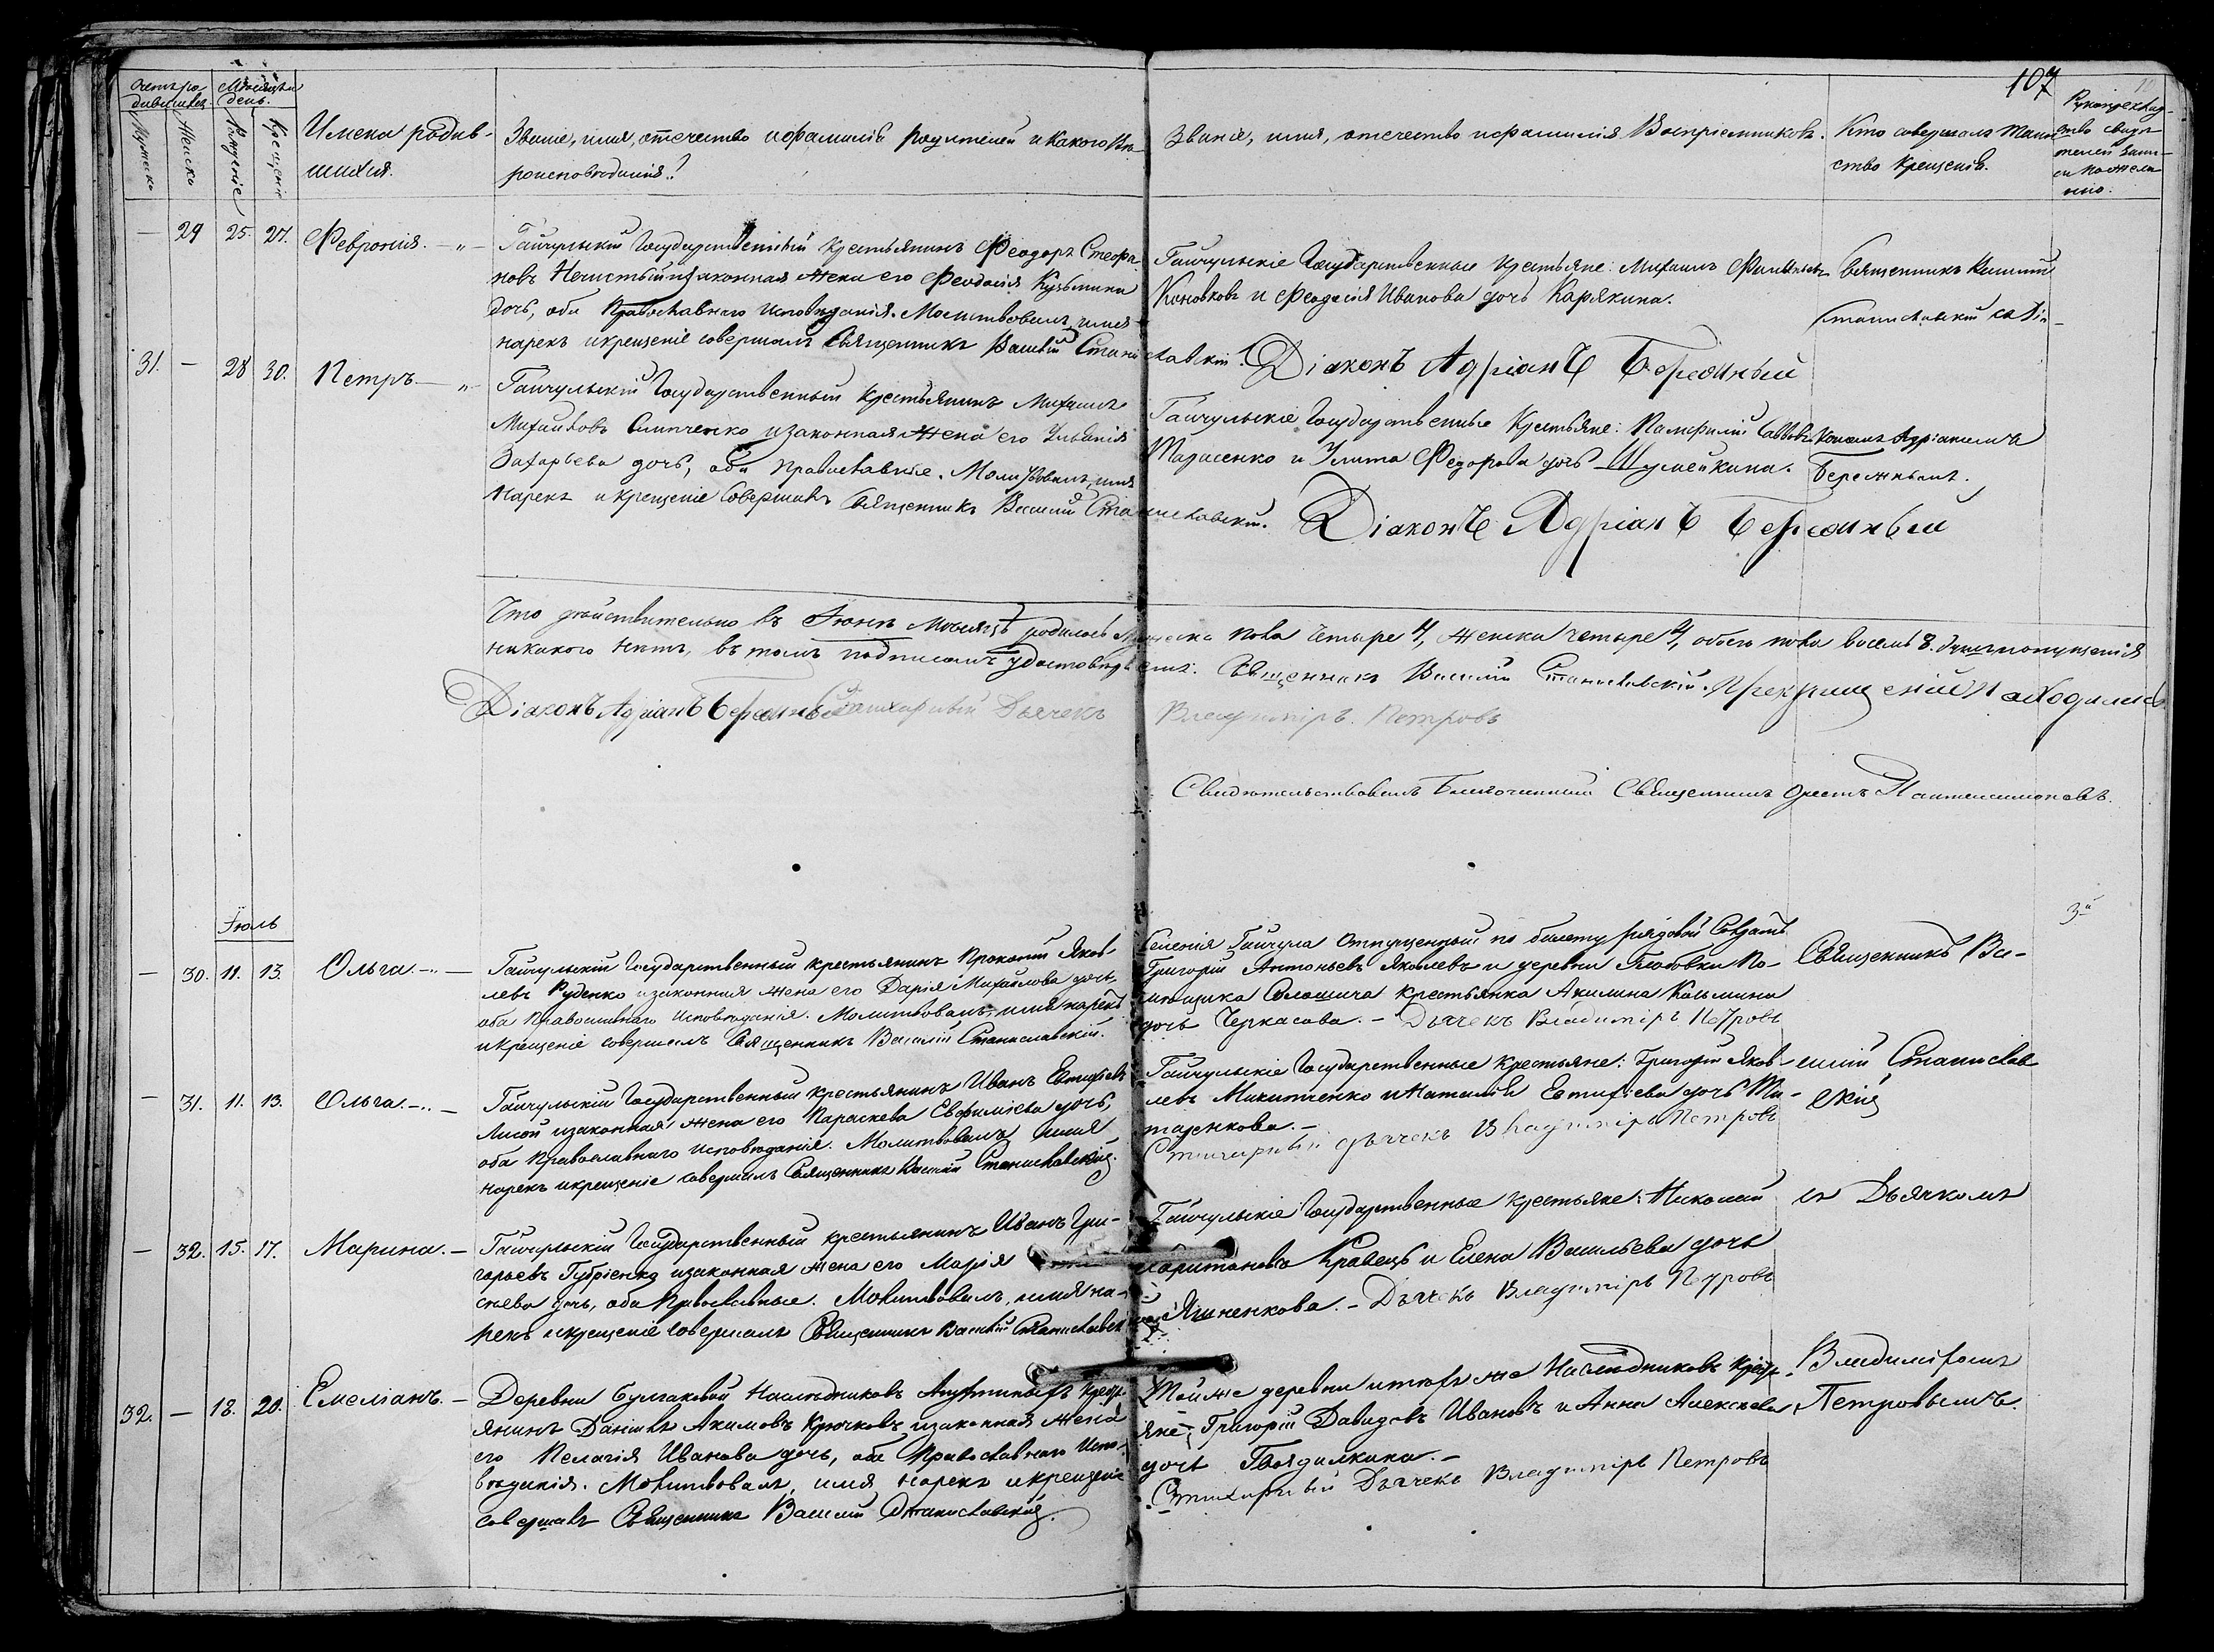 107
Счетъ ро
дившихся.
Мѣсяцъ и
день.
Мужеска
Женска
Рожденіе
Крещеніе
Имена родив-
шихся.
Званіе, имя, отечество и фамилія родителей и какого вѣ-
роисповѣданія?
Званіе, имя, отечество и фамилія Воспріемниковъ.
Кто совершалъ таин
ство крещенія.
Рукоприклад-
ство свидѣ-
телей записи
по жела-
нію.
— 29 25. 27. Февронія. — „ —
Гайчульскій Государственный крестьянинъ Феодоръ Стефа
новъ Нечистый и законная жена его Феодосія Кузьмина
дочь, оба Православнаго исповѣданія. Молитвовалъ, имя
нарекъ и крещеніе совершалъ Священникъ Василій Станиславскій.
Гайчульскіе Государственные крестьяне: Михаилъ Филиповъ
Коновковъ и Феодосія Иванова дочь Карякина.
Діаконъ Адріанъ Бережный
Священникъ Василій
Станиславскій съ Діа-
31. — 28 30. Петръ. — „ —
Гайчульскій Государственный крестьянинъ Михаилъ
Михайловъ Слипченко и законная жена его Ульянія
Захарьева дочь, оба православные. Молитвовалъ, имя
нарекъ и крещеніе совершалъ Священникъ Василій Станиславскій.
Гайчульскіе Государственные Крестьяне: Памфилій Савовъ
Тарасенко и Улита Федорова дочь Шумейкина.
Діаконъ Адріанъ Бережный
кономъ Адріаномъ
Бережнымъ.
Что дѣйствительно въ Іюнѣ мѣсяцѣ родилось Мужеска пола четыре 4, женска четыре 4, обоего пола восемь 8. душъ и опущенія
никакого нѣтъ, въ томъ подписомъ удостовѣряемъ: Священникъ Василій Станиславскій. При крещеніи находились
Діаконъ Адріанъ Бережный Стихарный Дьячекъ Владиміръ Петровъ
Свидѣтельствовалъ Благочинный Священникъ Орестъ Пантелеимоновъ.
Іюль
— 30. 11. 13. Ольга. — „ —
Гайчульскій Государственный крестьянинъ Прокопій Яков-
левъ Руденко и законная жена его Дарія Михайлова дочь,
оба Православнаго исповѣданія. Молитвовалъ, имя нарекъ
и крещеніе совершалъ Священникъ Василій Станиславскій.
Селенія Гайчула отпущенный по билету рядовой Солдатъ
Григорій Антоньевъ Яковлевъ и деревни По-
мѣщика крестьянка Акилина Козьмина
дочь Черкасова. — Дьячекъ Владиміръ Петровъ
3й
Священникъ Ва-
— 31. 11. 13. Ольга. — „ —
Гайчульскій Государственный крестьянинъ Иванъ Евтифіевъ
Лисой и законная жена его Параскева Евфиміева дочь,
оба Православнаго исповѣданія. Молитвовалъ, имя
нарекъ и крещеніе совершалъ Священникъ Василій Станиславскій.
Гайчульскіе Государственные крестьяне: Григорій Яков-
левъ Микитченко и Наталія Евтифіева дочь Ти-
таренкова. —
Стихарный дьячекъ Владиміръ Петровъ
силій Станислав
скій
— 32. 15. 17. Марина. —
Гайчульскій Государственный крестьянинъ Иванъ Гри-
горьевъ Губріенко и законная жена его Марія
сіева дочь, оба Православные. Молитвовалъ, имя на-
рекъ и крещеніе совершалъ Священникъ Василій Станиславскій
Гайчульскіе Государственные крестьяне: Николай
Харитоновъ Кравецъ и Елена Васильева дочь
Яшненкова. — Дьячекъ Владиміръ Петровъ
съ Дьячкомъ
32. — 18. 20. Емеліанъ. —
Деревни Булгаковой Наслѣдниковъ крест-
янинъ Даніилъ Акимовъ Крючковъ и законная жена
его Пелагія Иванова дочь, оба Православнаго испо-
вѣданія. Молитвовалъ, имя нарекъ и крещеніе
совершалъ Священникъ Василій Станиславскій.
Той же деревни и тѣхъ же Наслѣдниковъ крест-
яне; Григорій Давидовъ Ивановъ и Анна Алексѣева
дочь Гвоздилкина. —
Стихарный Дьячекъ Владиміръ Петровъ
Владиміромъ
Петровымъ.